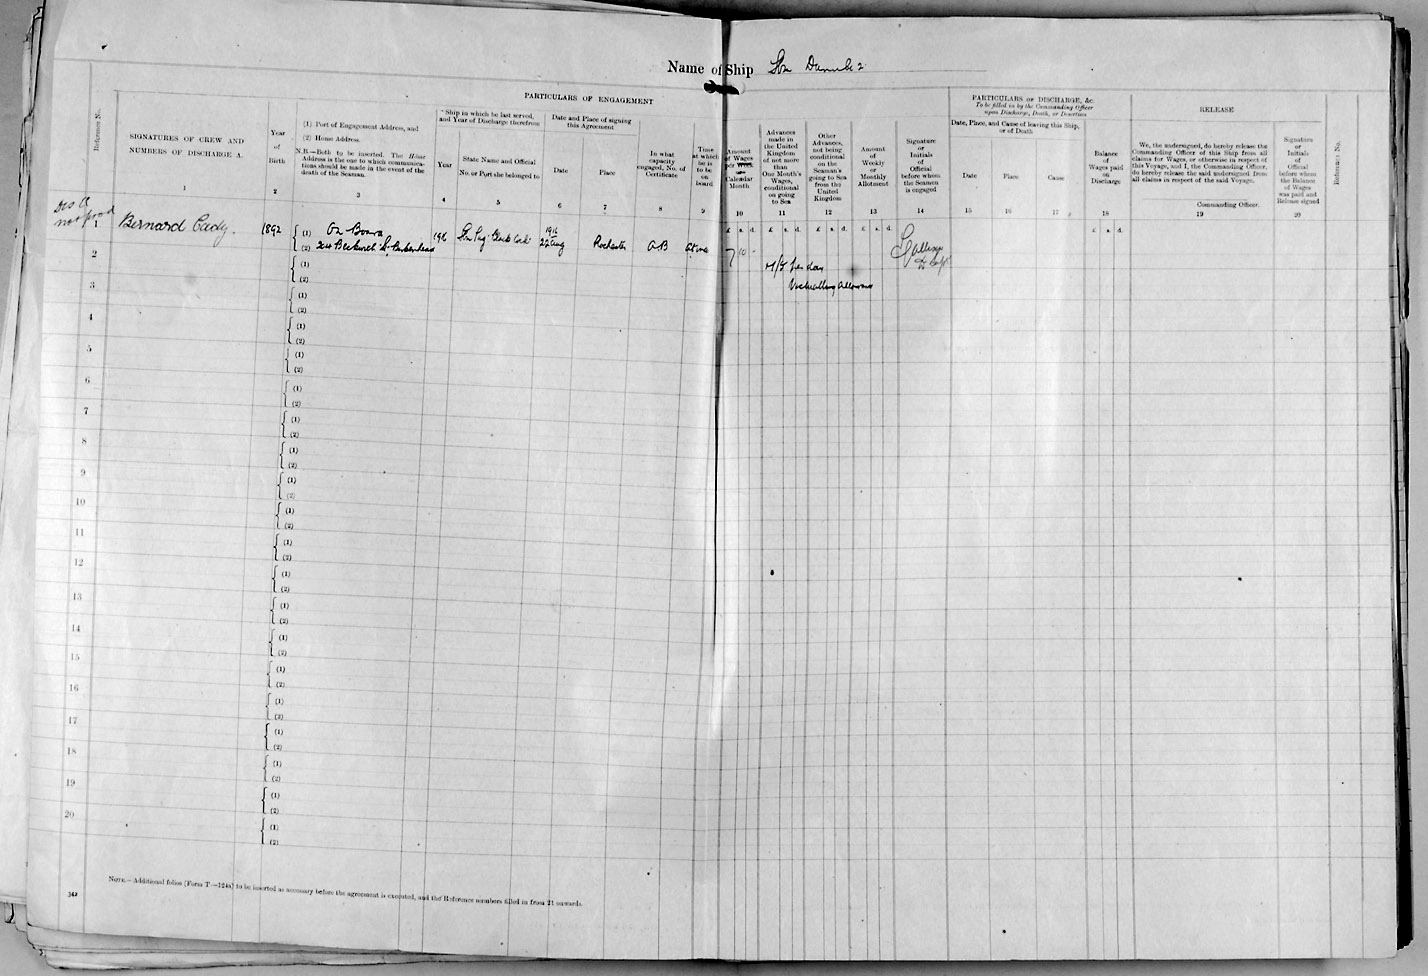 Name of Ship
Danube 2
PARTICULARS OF ENGAGEMENT
PARTICULARS OF DISCHARGE, &c.
To be filled in by the Commanding Officer
upon Discharge, Death, or Desertion
RELEASE
Reference No.
SIGNATURES OF CREW AND
NUMBERS OF DISCHARGE A.
1
Year
of
Birth
2
(1) Port of Engagement Address, and
(2) Home Address.
N.B.—Both to be inserted. The Home
Address is the one to which communica-
tions should be made in the event of the
death of the Seaman.
3
* Ship in which he last served,
and Year of Discharge therefrom
Year
4
State Name and Official
No. or Port she belonged to
5
Date and Place of signing
this Agreement
Date
6
Place
7
In what
capacity
engaged, No. of
Certificate
8
Time
at which
he is
to be
on
board
9
Amount
of Wages
per Week
or
Calendar
Month
10
Advances
made in
the United
Kingdom
of not more
than
One Month's
Wages,
conditional
on going
to Sea
11
Other
Advances,
not being
conditional
on the
Seaman's
going to Sea
from the
United
Kingdom
12
Amount
of
Weekly
or
Monthly
Allotment
13
Signature
or
Initials
of
Official
before whom
the Seamen
is engaged
14
Date, Place, and Cause of leaving this Ship,
or of Death
Date
15
Place
16
Cause
17
Balance
of
Wages paid
on
Discharge
18
We, the undersigned, do hereby release the
Commanding Officer of this Ship from all
claims for Wages, or otherwise in respect of
this Voyage, and I, the Commanding Officer,
do hereby release the said undersigned from
all claims in respect of the said Voyage.
Commanding Officer.
19
Signature
or
Initials
of
Official
before whom
the Balance
of Wages
was paid and
Release signed
20
Reference No.
£ s. d. £ s. d. £ s. d. £ s. d. £ s. d.
Dis A
not prod
1 Bernard Cady. 1892 (1) On Board
(2) Beckwith St Birkenhead 1916 1916 22 Aug Rochester AB at once 7 10 -
2 (1) per day
(2) Victualling Allowance
3 (1)
(2)
4 (1)
(2)
5 (1)
(2)
6 (1)
(2)
7 (1)
(2)
8 (1)
(2)
9 (1)
(2)
10 (1)
(2)
11 (1)
(2)
12 (1)
(2)
13 (1)
(2)
14 (1)
(2)
15 (1)
(2)
16 (1)
(2)
17 (1)
(2)
18 (1)
(2)
19 (1)
(2)
20 (1)
(2)
NOTE.—Additional folios (Form T.—124A) to be inserted as necessary before the agreement is executed, and the Reference numbers filled in from 21 onwards.